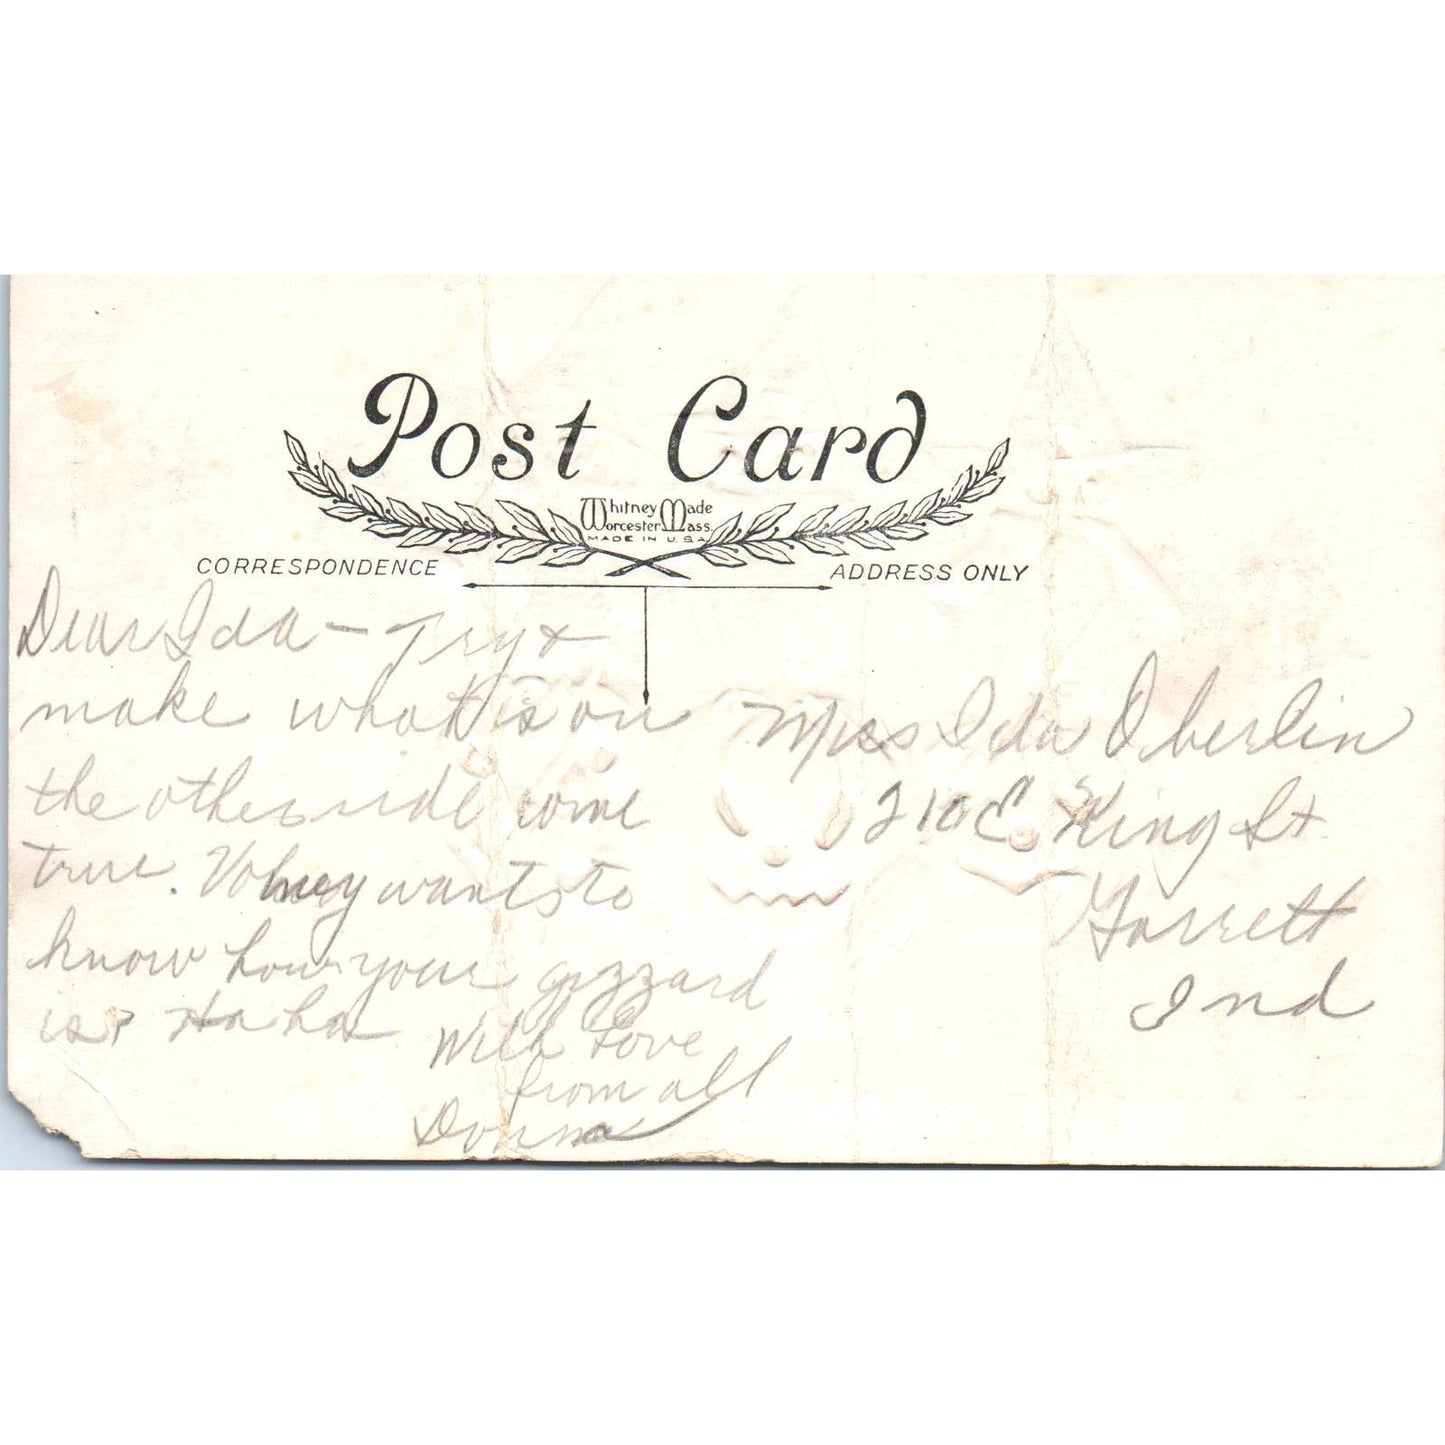 Post Card
Whitney Made
Worcester Mass.
MADE IN U.S.A.
CORRESPONDENCE
ADDRESS ONLY
Dear Ida – Try &
make what is on
the other side come
true. Volney wants to
know how your gizzard
is? Ha ha
With Love
from all
Donna
Miss Ida Oberlin
210 E King St
Garrett
Ind